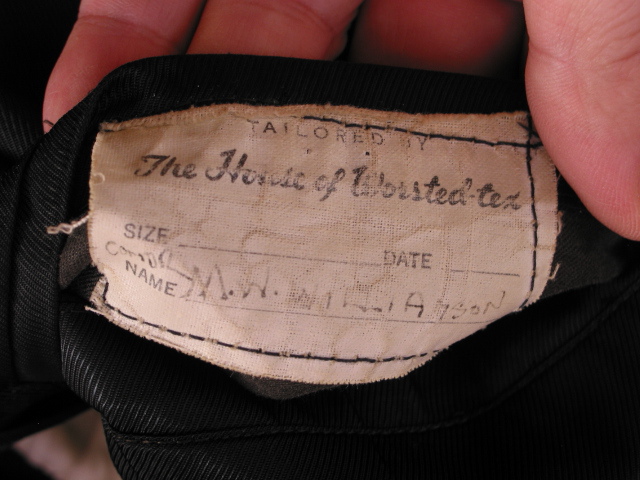 TAILORED BY
The House of Worsted-tex
SIZE DATE
NAME M.W. WILLIAMSON